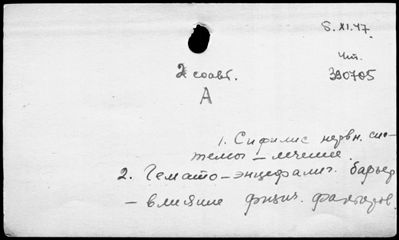 8.XI.47.
Чит.
2 соавт. 390705
А
1. Сифилис нервн. сис-
темы – лечение.
2. Гемато-энцефалич. барьер
– влияние физич. факторов.